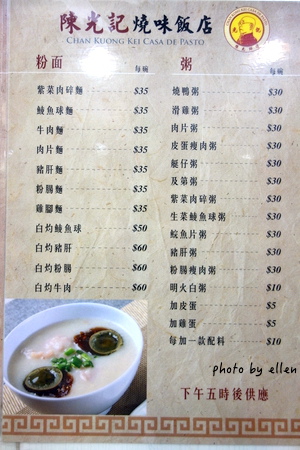 陳光記燒味飯店
CHAN KUONG KEI CASA DE PASTO
粉面 每碗
紫菜肉碎麵 $35
鯪魚球麵 $35
牛肉麵 $35
肉片麵 $35
豬肝麵 $35
粉腸麵 $35
雞腳麵 $35
白灼鯪魚球 $50
白灼豬肝 $60
白灼粉腸 $60
白灼牛肉 $60
粥 每碗
燒鴨粥 $30
滑雞粥 $30
肉片粥 $30
皮蛋瘦肉粥 $30
艇仔粥 $30
及第粥 $30
紫菜肉碎粥 $30
生菜鯪魚球粥 $30
鯇魚片粥 $30
豬肝粥 $30
粉腸瘦肉粥 $30
明火白粥 $10
加皮蛋 $5
加雞蛋 $5
每加一款配料 $10
photo by ellen
下午五時後供應